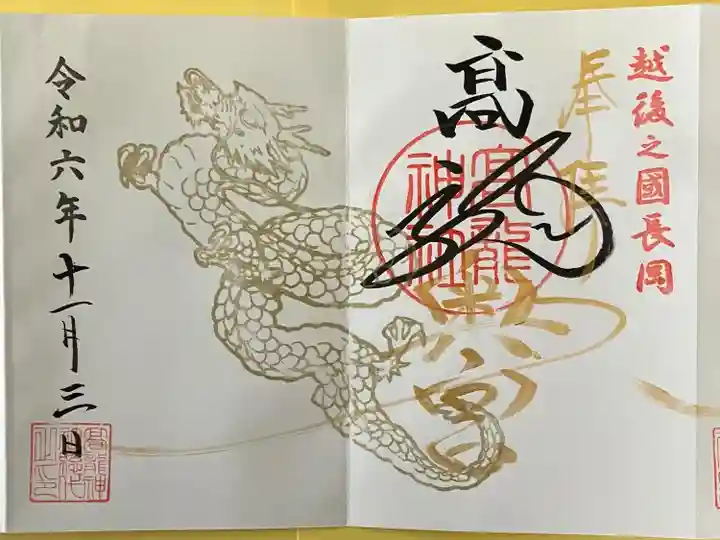 越後之國長岡
奉拝
高龍
高龍神社
奥宮
令和六年十一月三日